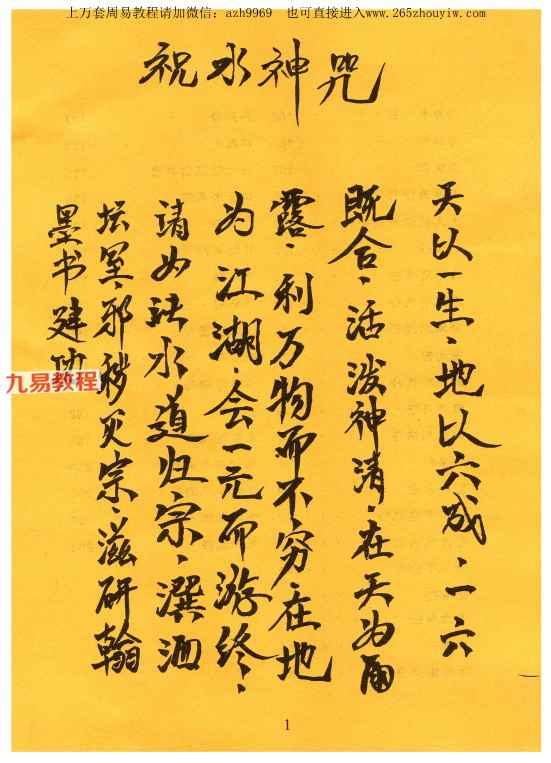 上万套周易教程请加微信：azh9969　也可直接进入www.265zhouyiw.com
祝水神咒
天以一生、地以六成、一六
既合、活泼神清、在天为雨
露、利万物而不穷、在地
为江湖、会一元而游终、
请如法水道归宗、潠洒
坛罡、邪秽灭宗、滋研翰
墨书建功
九易教程
1